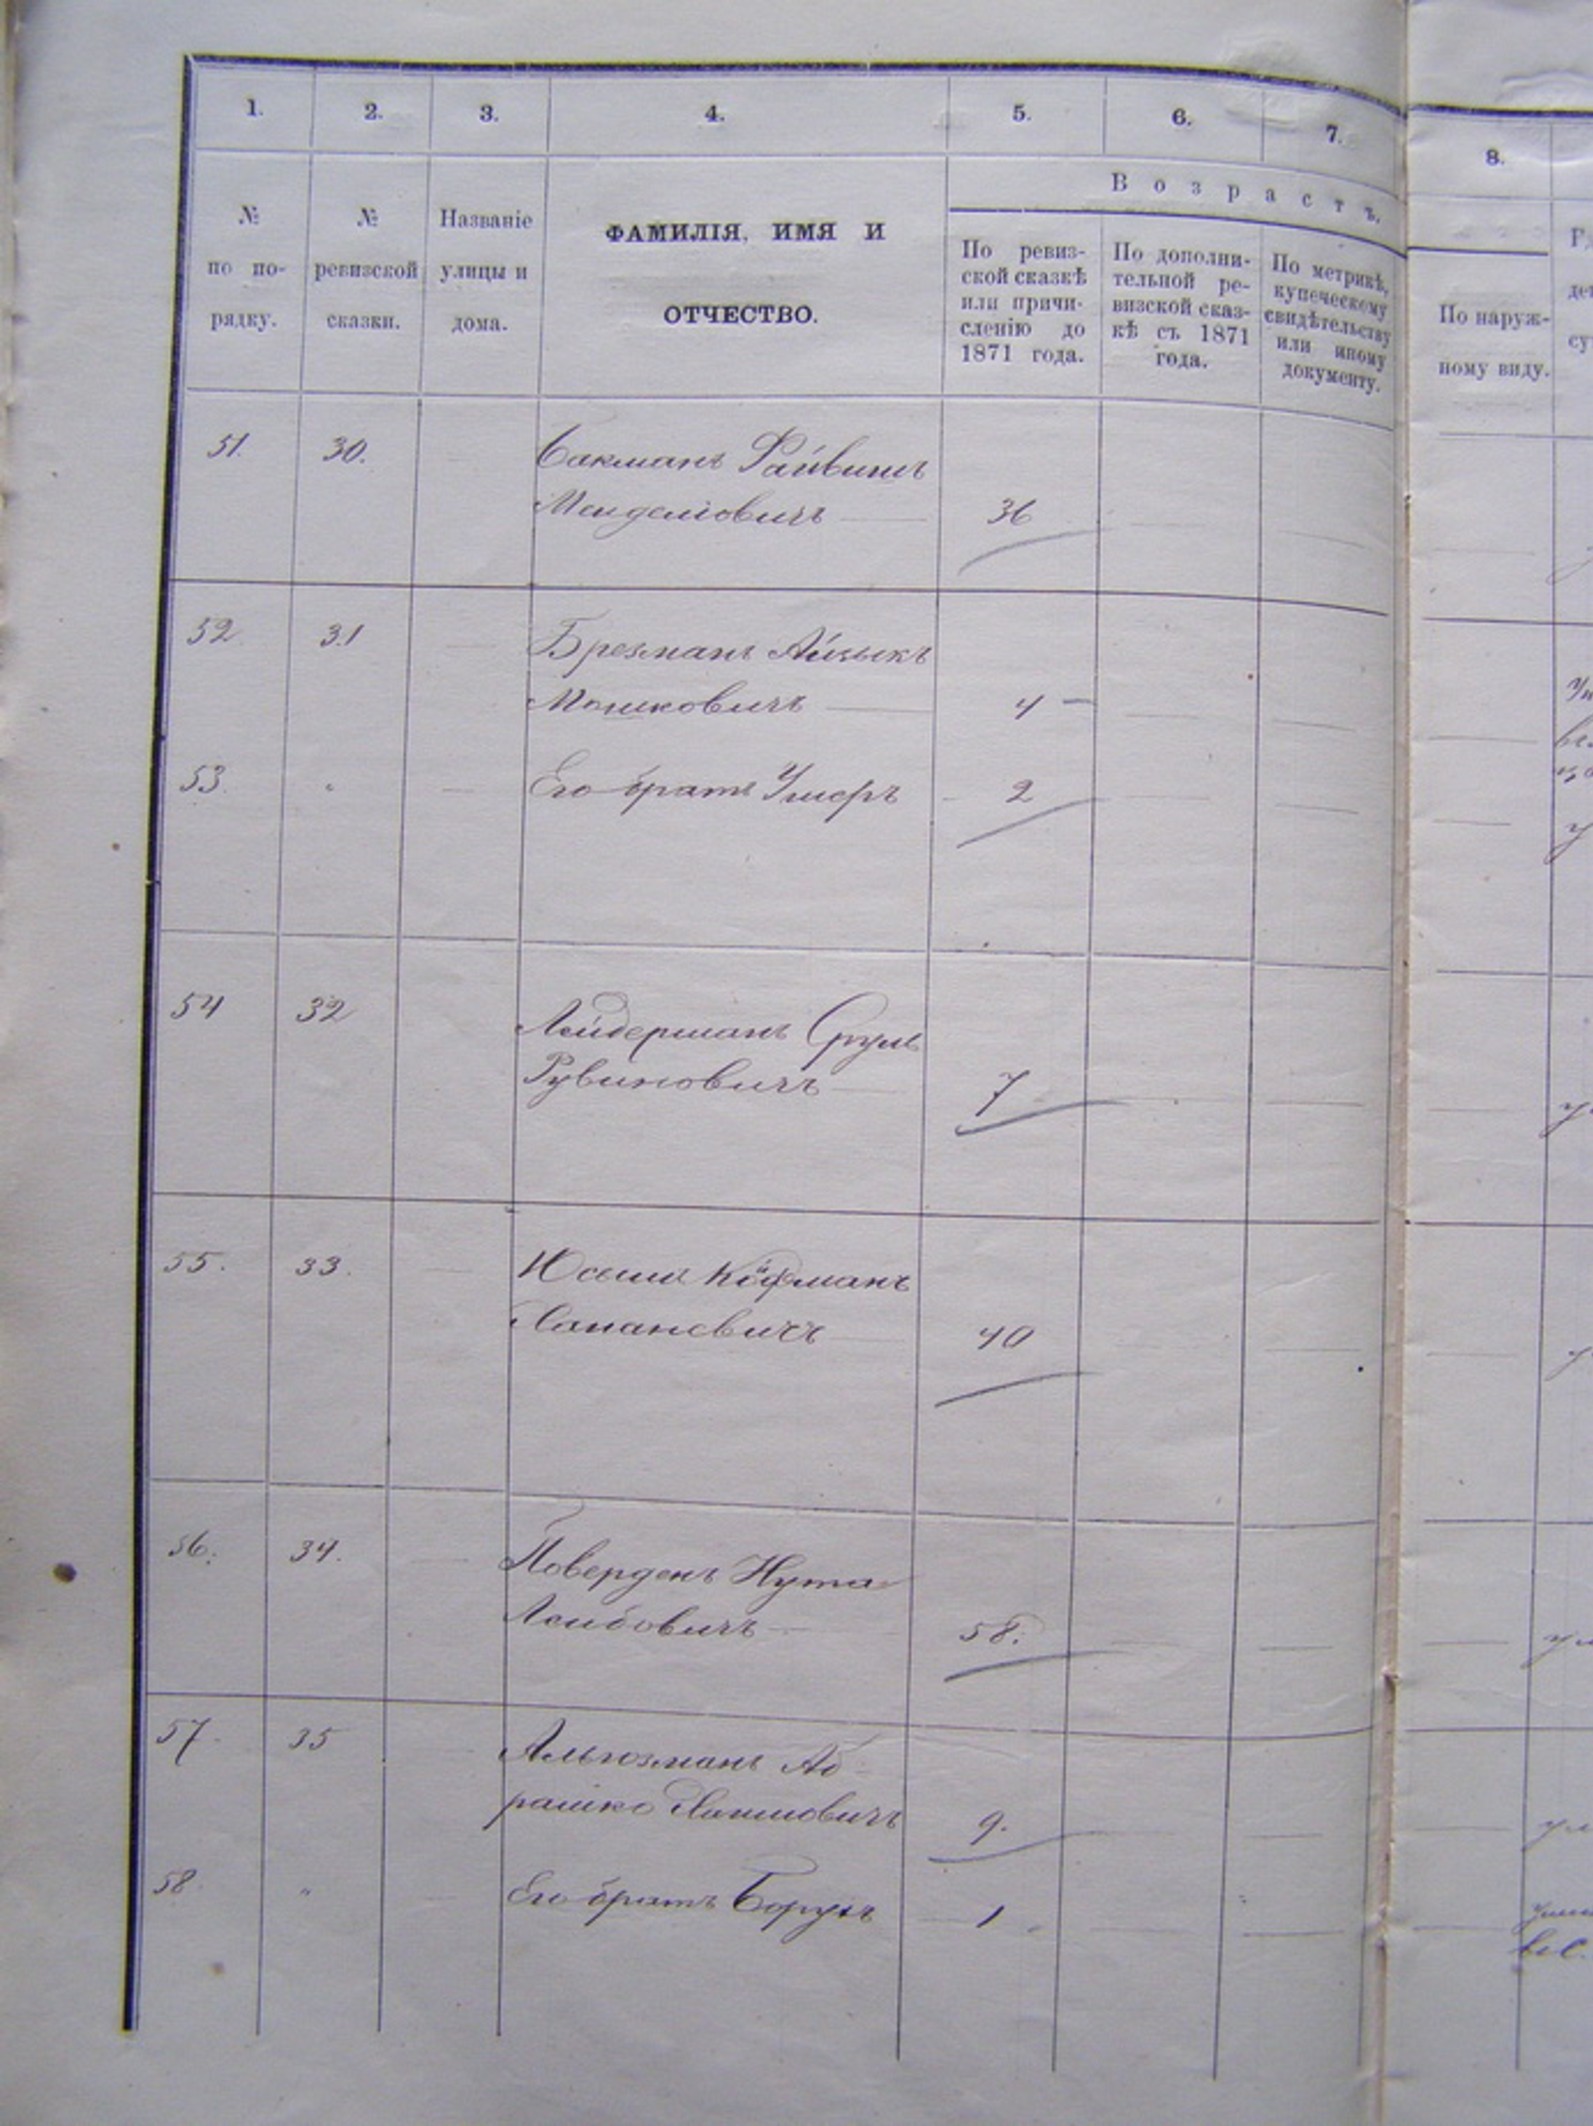 1. 2. 3. 4. 5. 6. 7. 8.
№ по по-рядку.
№ ревизской сказки.
Названіе улицы и дома.
ФАМИЛІЯ, ИМЯ И
ОТЧЕСТВО.
Возрастъ.
По ревиз-
ской сказкѣ
или причи-
сленію до
1871 года.
По дополни-
тельной ре-
визской сказ-
кѣ съ 1871
года.
По метрикѣ,
купеческому
свидѣтельству
или иному
документу.
По наруж-
ному виду.
51. 30. Бакманъ
Менделіовичъ 36
52. 31 Брезманъ Айзыкъ
Мошковичъ 4
53. " Его братъ Ушеръ 2
54 32 Лейдерманъ Сруль
Рувиновичъ 7
55. 33. Кофманъ
40
56. 34. Повердень Нута
Лейбовичъ 58.
57. 35 Аб-
рашко 9.
58 " Его братъ Борухъ 1